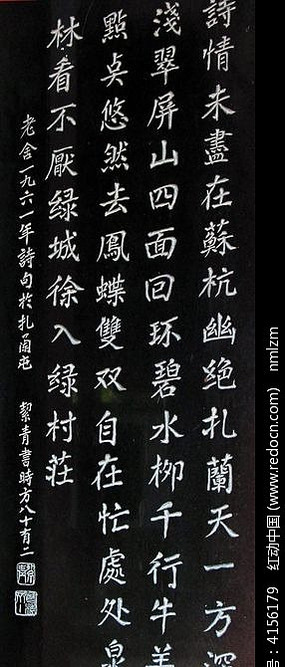 詩情未盡在蘇杭幽绝扎蘭天一方深
淺翠屏山四面回环碧水栁千行牛羊
點点悠然去鳳蝶雙双自在忙處处泉
林看不厭绿城徐入绿村莊
老舍一九六一年詩句於扎蘭屯
絜青書時方八十有二
红动中国 (www.redocn.com) nmlzm
号: 4156179